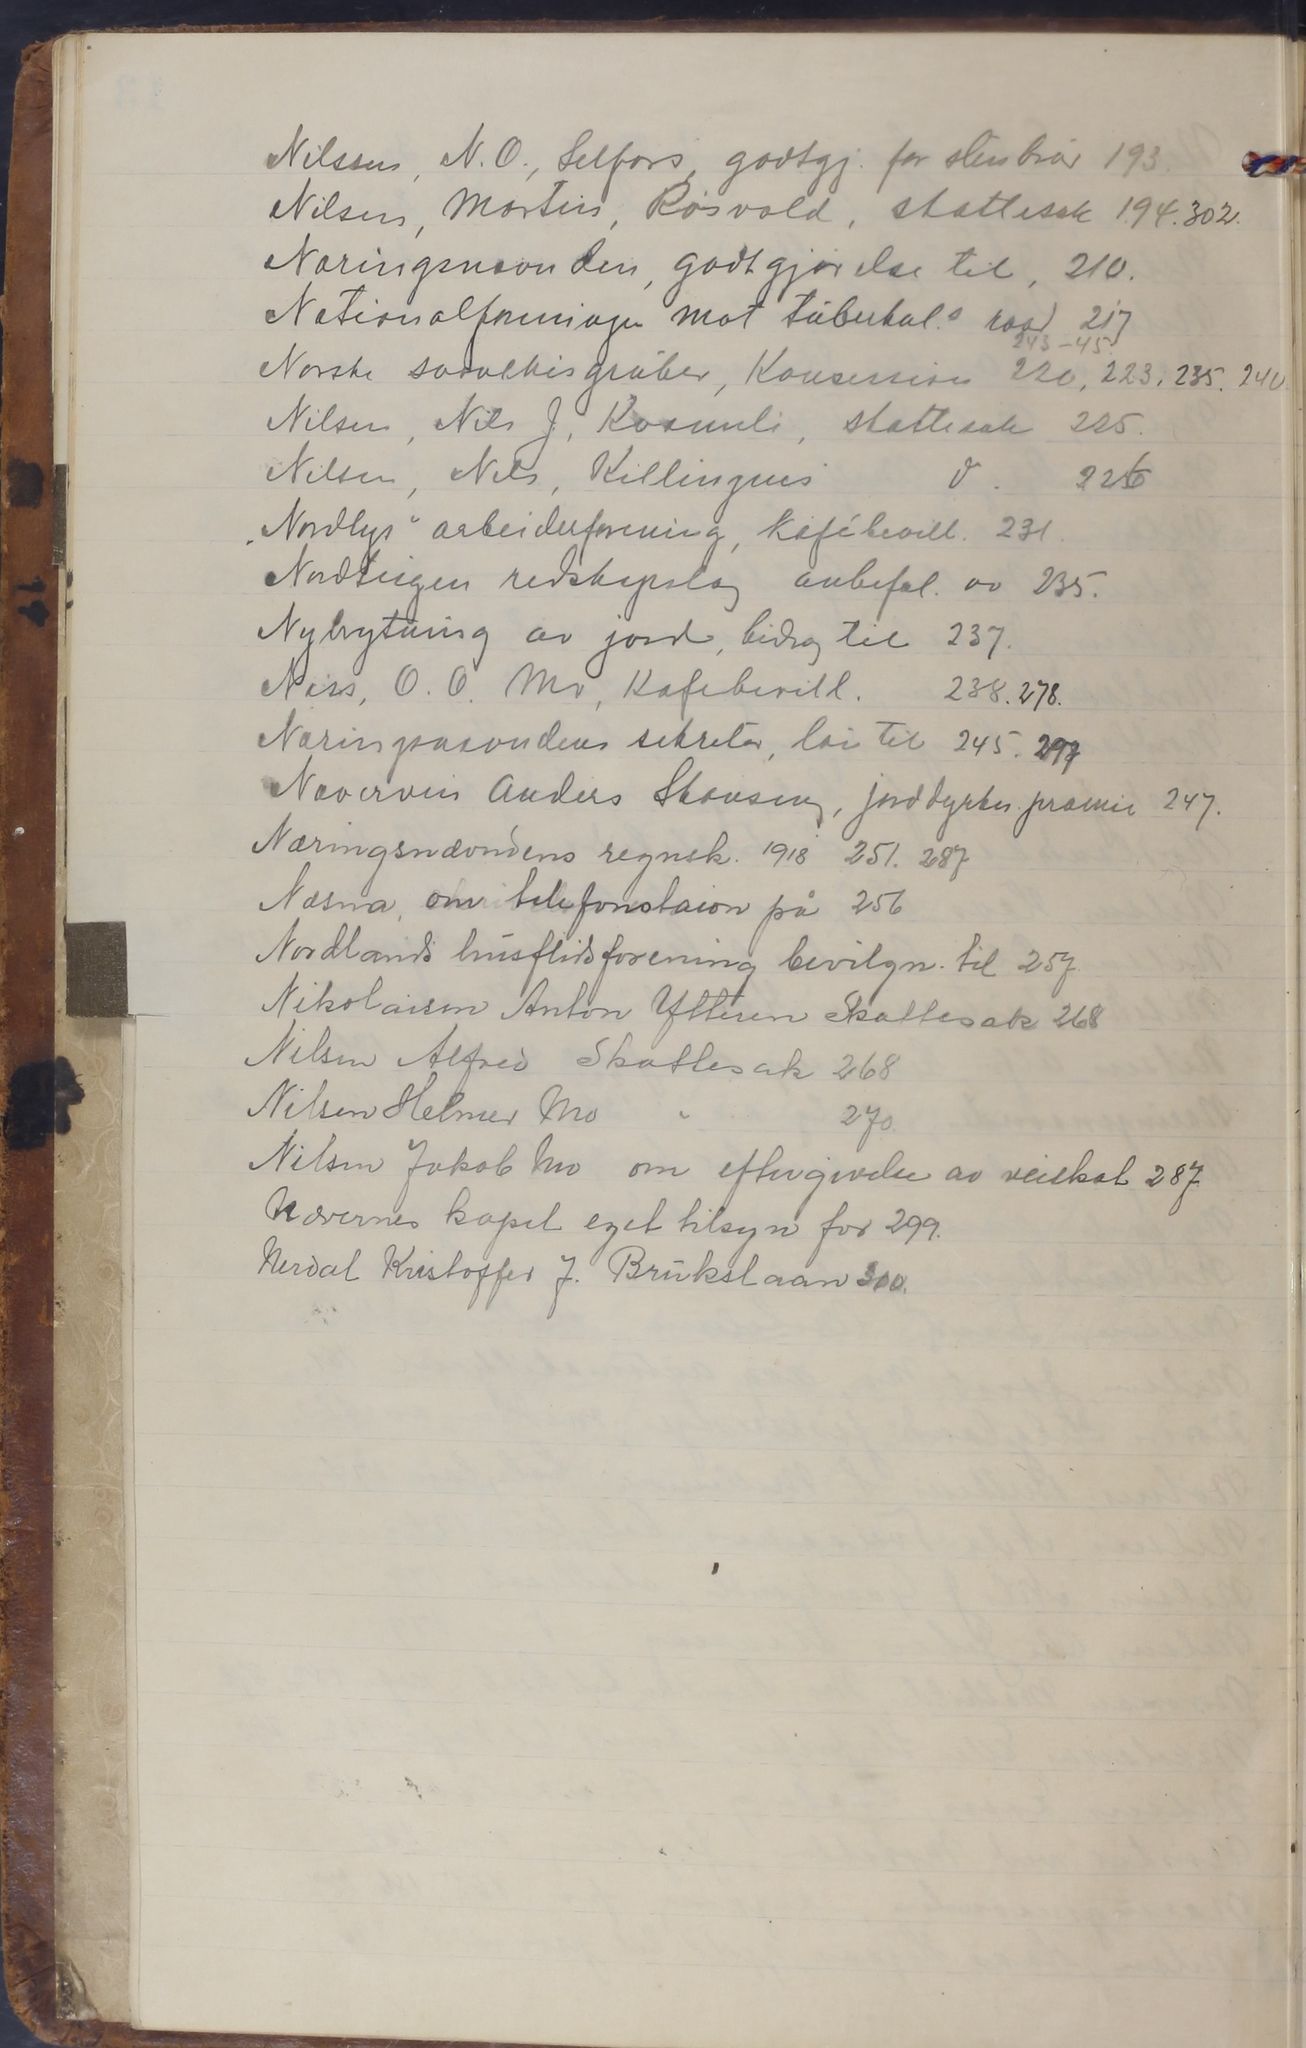 Nilssen, N. O., Selfors, godtgj. for stenbrår 193.
Nilsen, Martin, Røsvold, skattesak 194. 302.
Næringsnævnden, godtgjørelse til, 210.
Nationalforeningen mot tuberkul.s raad 217
243-45
Norske svovelkisgruber, Konsession 220, 223, 235. 240
Nilsen, Nils J, skattesak 225.
Nilsen, Nils, Killingnes d. 226
"Nordlys" arbeiderforening, Kafébevill. 231.
redskapslag anbefal. av 235.
Nybrytning av jord, bidrag til 237.
Næss, O. O. Mo, Kafebevill. 238. 278.
Næringsnævndens sekretær, løn til 245. 297
Næverviei Anders jorddyrkn. præmie 247.
Næringsnævndens regnsk. 1918 251. 287
Næsna, om telefonstaion på 256
Nordlands husflidsforening bevilgn. til 257
Nikolaisen Anton Ytteren Skattesak 268
Nilsen Alfred Skattesak 268
Nilsen Helmer Mo " 270
Nilsen Jakob Mo om eftergivelse av veiskat 287
Nævernes kapel eget tilsyn for 299.
Nerdal Kristoffer J. Brukslaan 300.